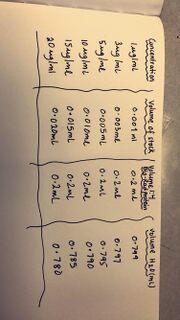 Concentration Volume of stock Volume Volume H₂O (mL)
1ug/mL 0.001 ml 0.2 mL 0.799
3ug/mL 0.003mL 0.2mL 0.797
5ug/mL 0.005mL 0.2mL 0.795
10ug/mL 0.010mL 0.2mL 0.790
15ug/mL 0.015mL 0.2mL 0.785
20ug/mL 0.020mL 0.2mL 0.780